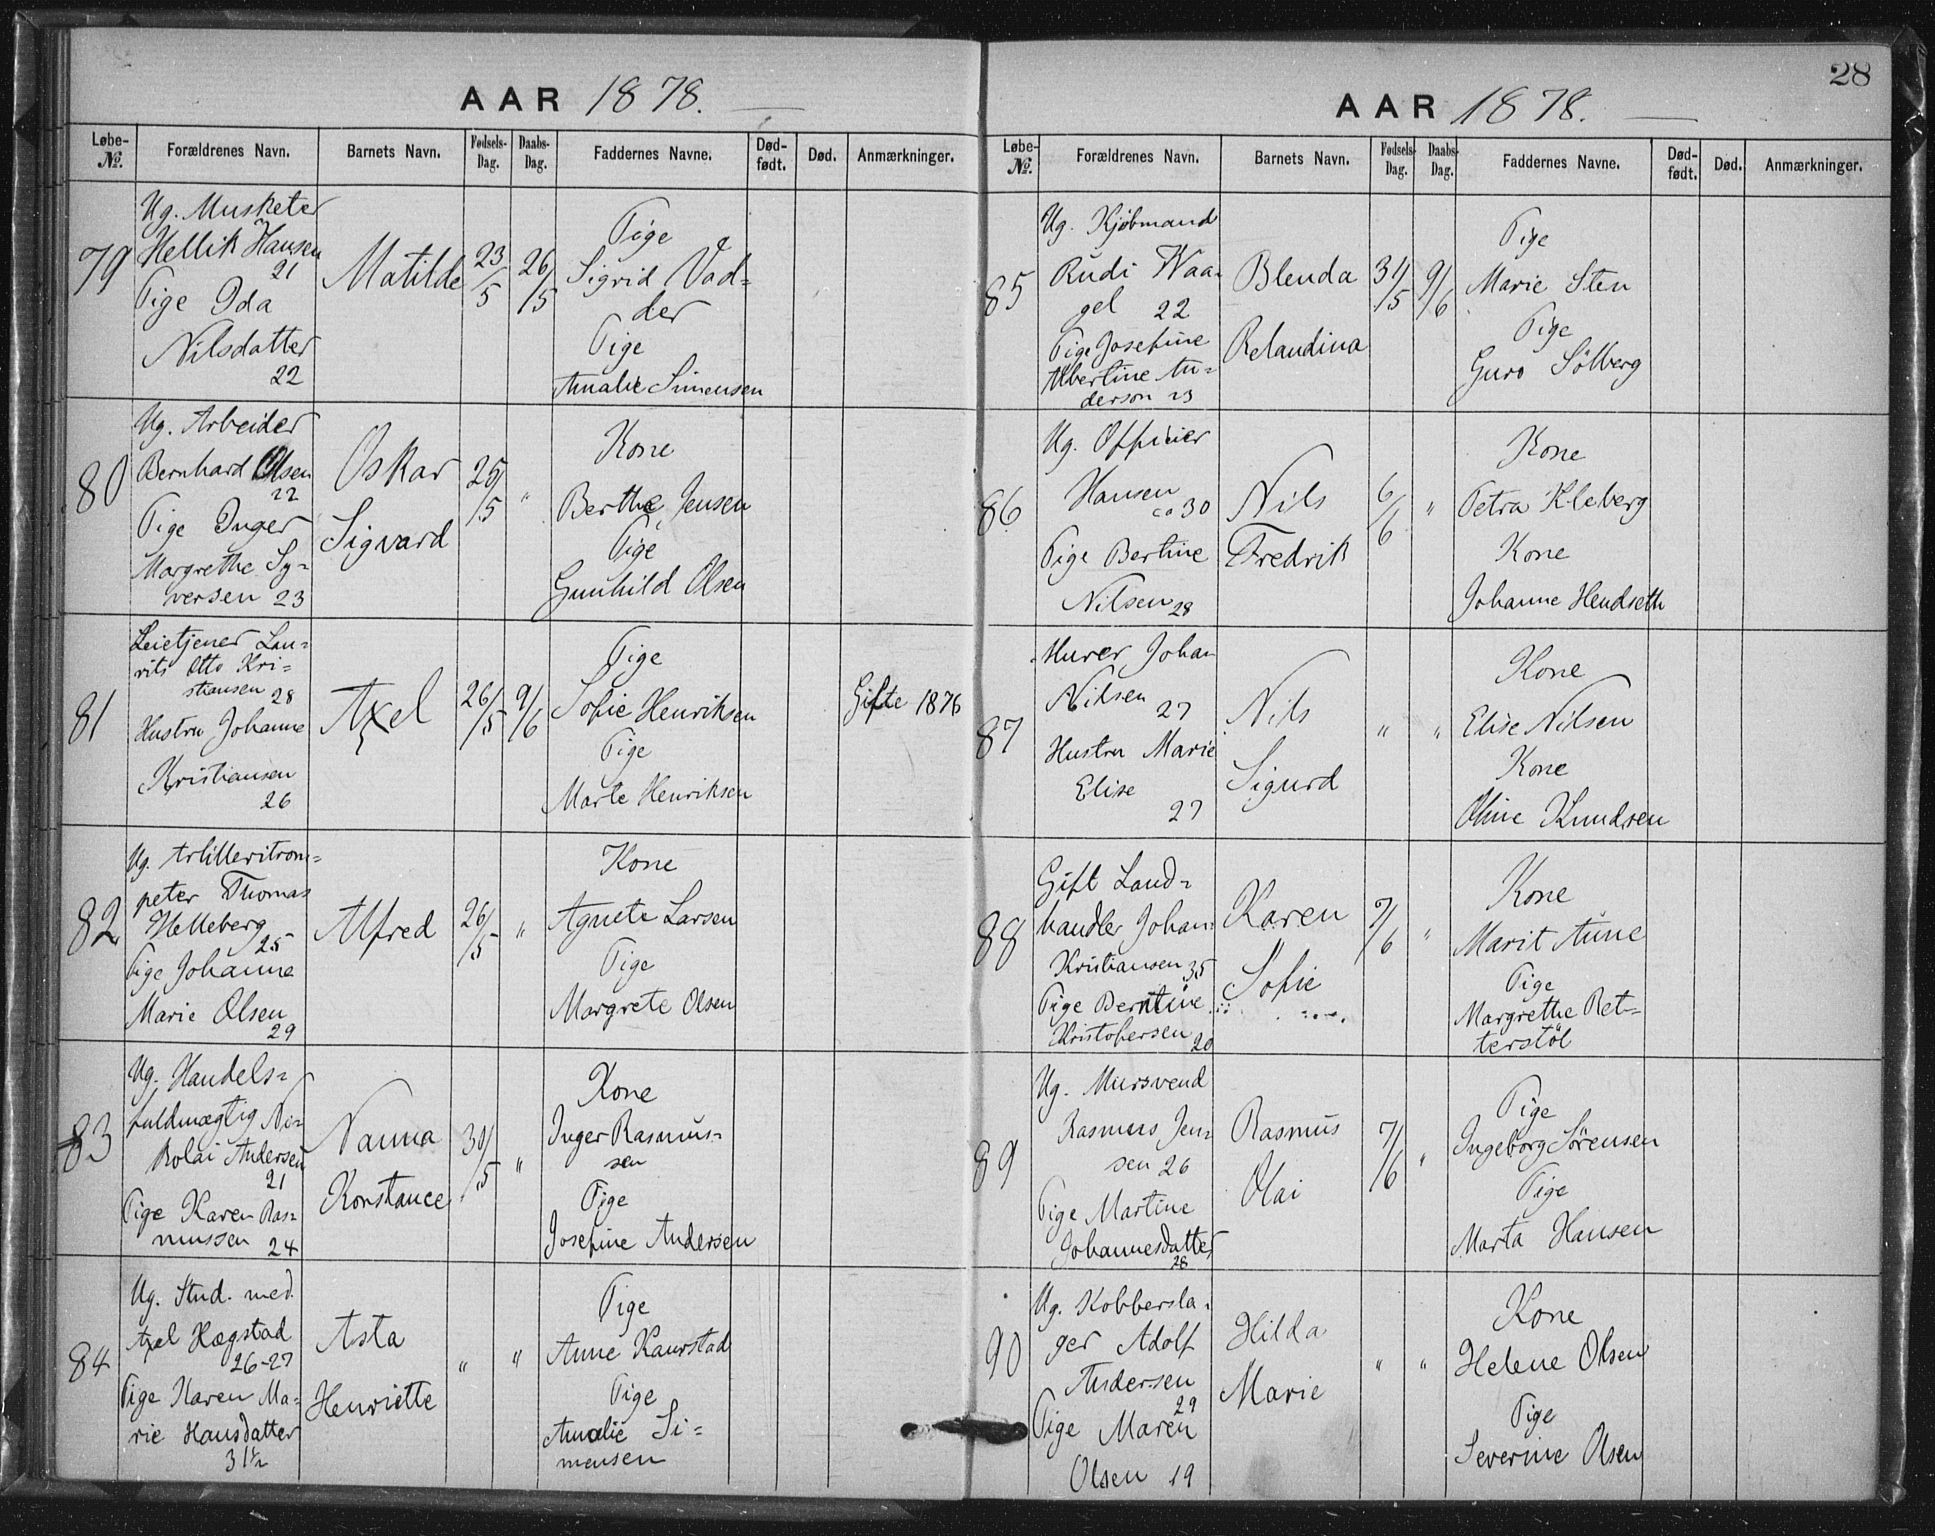 AAR 1878.
Løbe-№. Forældrenes Navn. Barnets Navn. Fødsels-Dag. Daabs-Dag. Faddernes Navne. Død-født. Død. Anmærkninger.
79
Ug. Musketer
Hellik Hansen
21
Pige Ida
Nilsdatter
22
Matilde
23/5
26/5
Pige
Sigrid Vad=
der
Pige
Amalie Simensen
80
Ug. Arbeider
Bernhard Olsen
22
Pige Inger
Margrethe Sy=
versen 23
Oskar
Sigvard
25/5
"
Kone
Berthe Jensen
Pige
Gunhild Olsen
81
Leietjener Lau=
rits Otto Kri=
stiansen 28
Hustru Johanne
Kristiansen
26
Axel
26/5
9/6
Pige
Sofie Henriksen
Pige
Marte Henriksen
Gifte 1876
82
Ug. Artilleritrom=
peter Thomas
Helleberg
25
Pige Johanne
Marie Olsen
29
Alfred
26/5
"
Kone
Agnete Larsen
Pige
Margrete Olsen
83
Ug. Handels=
fuldmægtig Ni=
kolai Andersen
21
Pige Karen Ras=
mussen 24
Nanna
Konstance
30/5
"
Kone
Inger Rasmus=
sen
Pige
Josefine Andersen
84
Ug. Stud. med.
Axel Hægstad
26-27
Pige Karen Ma=
rie Hansdatter
31½
Asta
Henriette
"
"
Pige
Anne Kaurstad
Pige
Amalie Si=
mensen
28
AAR 1878.
Løbe-№. Forældrenes Navn. Barnets Navn. Fødsels-Dag. Daabs-Dag. Faddernes Navne. Død-født. Død. Anmærkninger.
85
Ug. Kjøbmand
Rudi Waa=
gel 22
Pige Josefine
Albertine An=
derson 23
Blenda
Relaudina
31/5
9/6
Pige
Marie Sten
Pige
Guro Sölberg
86
Ug. Officier
Hansen
ca 30
Pige Bertine
Nilsen 28
Nils
Fredrik
6/6
"
Kone
Petra Kleberg
Kone
Johanne Hendseth
87
Murer Johan
Nilsen
27
Hustru Marie
Elise
27
Nils
Sigurd
"
"
Kone
Elise Nilsen
Kone
Oline Knudsen
88
Gift Land=
handler Johan
Kristiansen 35
Pige Berntine
Kristofersen
20
Karen
Sofie
7/6
"
Kone
Marit Aune
Pige
Margrethe Ret=
terstöl
89
Ug. Mursvend
Rasmus Jen=
sen 26
Pige Martine
Johannesdatter
28
Rasmus
Olai
7/6
"
Pige
Ingeborg Sørensen
Pige
Marta Hansen
90
Ug. Kobbersla=
ger Adolf
Andersen
29
Pige Maren
Olsen 19
Hilda
Marie
"
"
Kone
Helene Olsen
Pige
Severine Olsen